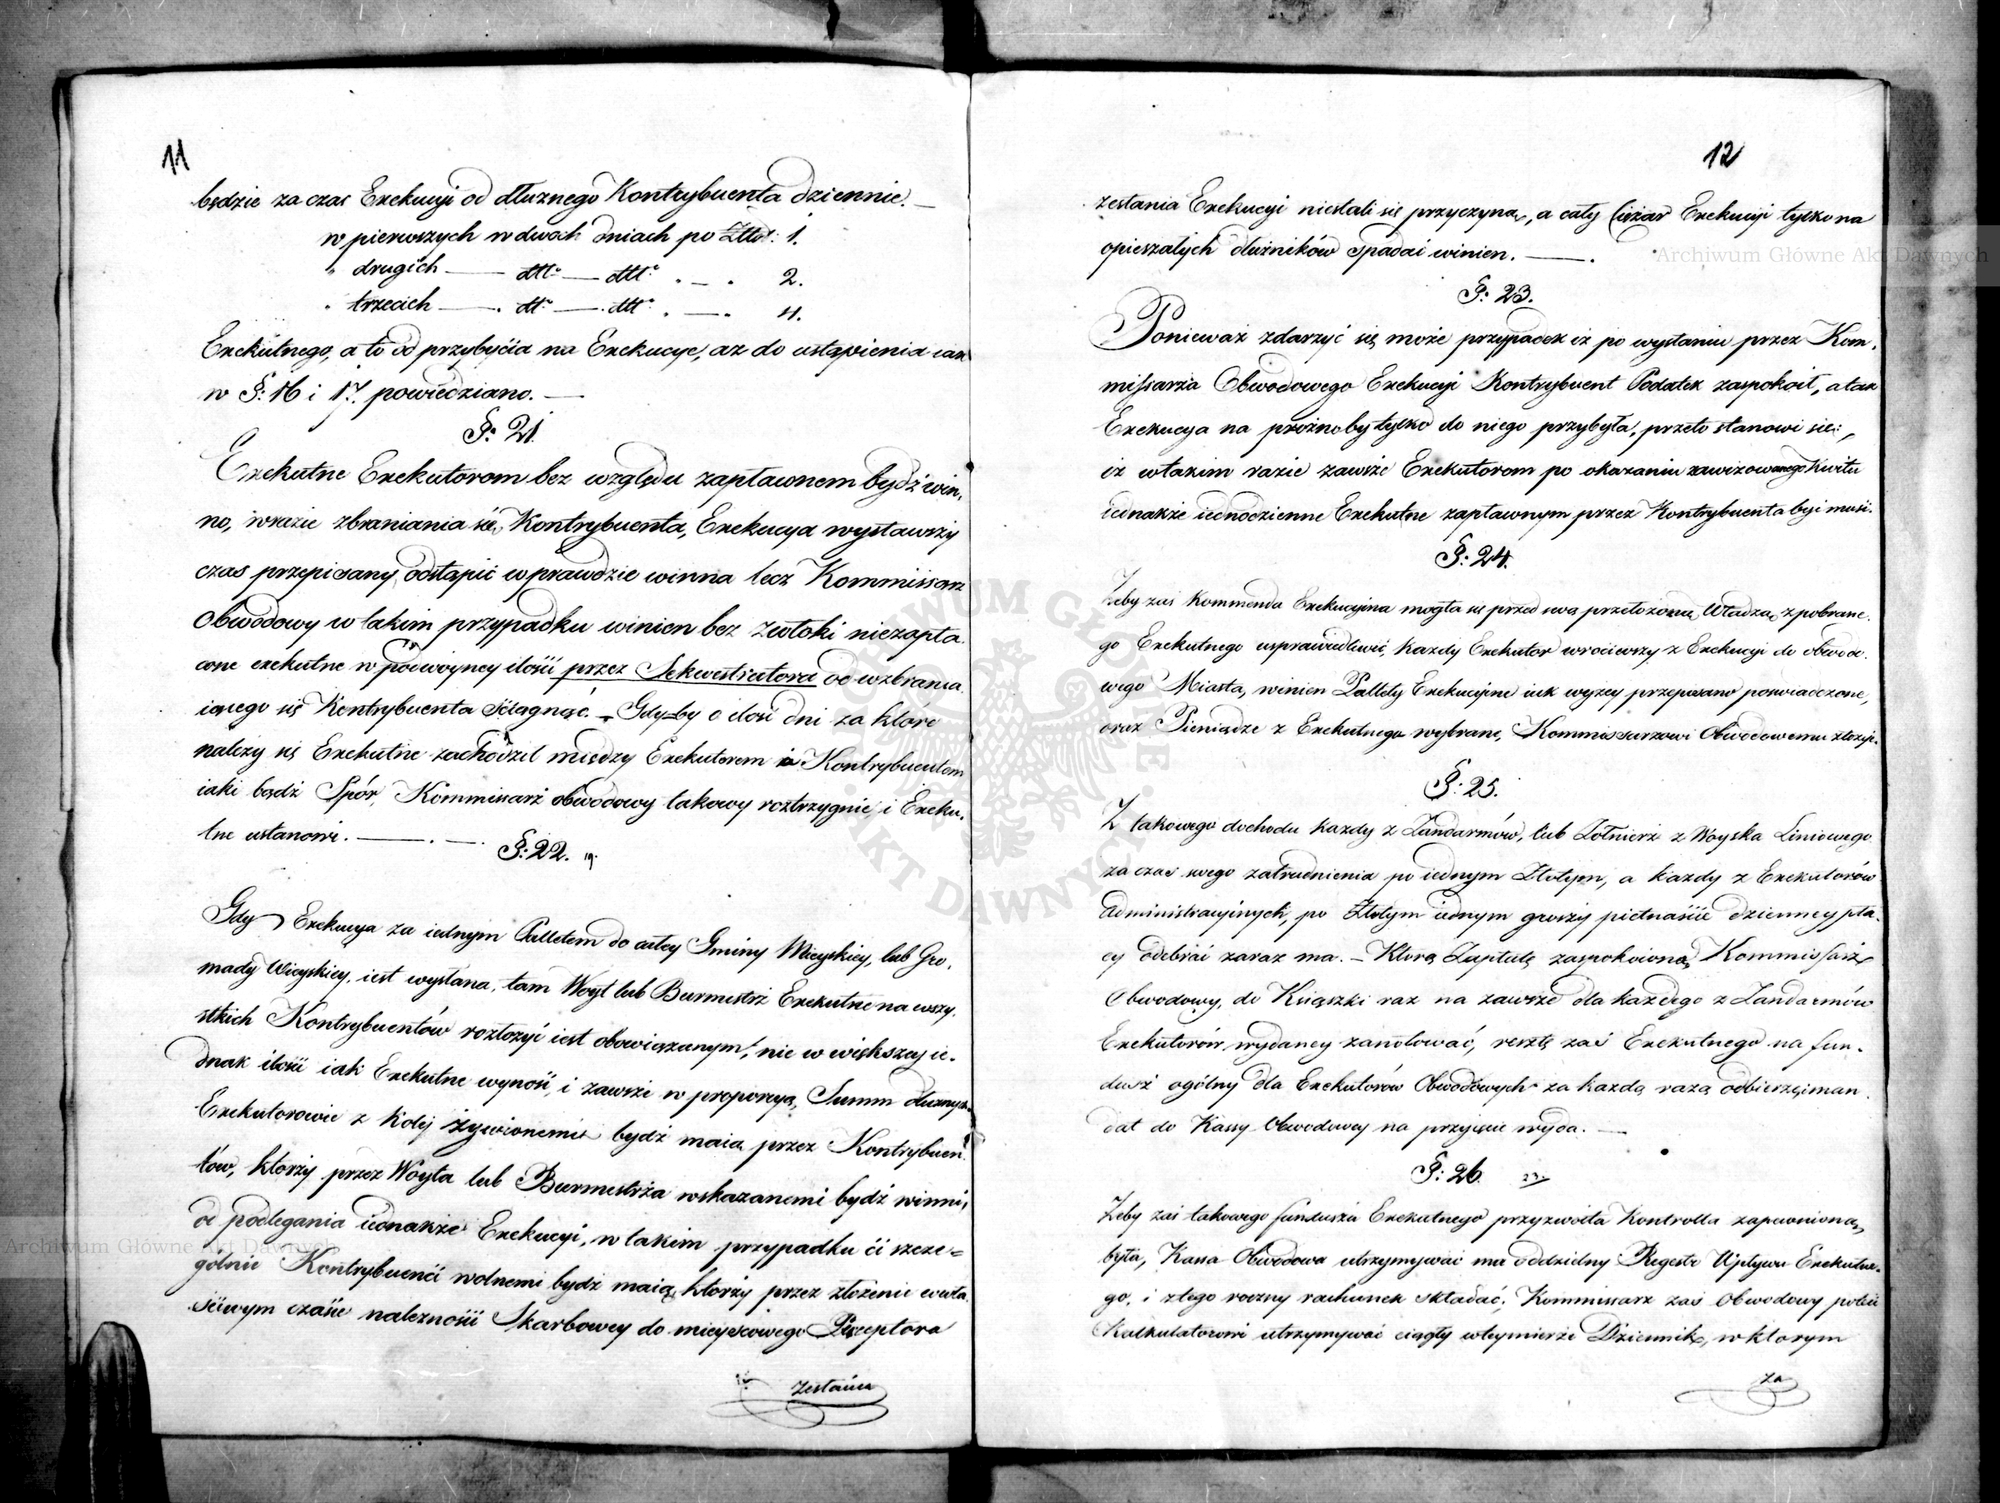 11
będzie za czas Exekucyi od dłuznego Kontrybuenta dziennie. —
w pierwszych w dwóch dniach po Złto: 1.
" drugich — dtto — dtto " — " 2.
" trzecich — dtto — dtto " — " 4.
Exekutnego, a to od przybycia na Exekucyę, aż do ustąpienia iak
w §: 16 i 17. powiedziano. —
§: 21.
Exekutne Exekutorom bez względu zapławnem bydź win,
no, w razie zbraniania się Kontrybuenta, Exekucya wystawszy
czas przepisany odstąpić wprawdzie winna lecz Kommissarz
Obwodowy w takim przypadku winien bez zwłoki niezapła,
cone exekutne w podwoyney ilości przez Sekwestratora od wzbrania,
iącego się Kontrybuenta ściągnąć. — Gdyby o ilość dni za które
należy się Exekutne zachodził między Exekutorem a Kontrybuentem
iaki bądź Spór, Kommissarz obwodowy takowy roztrzygnie, i Exeku,
tne ustanowi. —
§: 22.
Gdy Exekucya za iednym Palletem do całey Gminy Mieyskiey, lub Gro,
mady Wieyskiey, iest wysłana, tam Woyt lub Burmistrz Exekutne na wszy,
stkich Kontrybuentów rozłożyć iest obowiązanym, nie w większey ie,
dnak ilości iak Exekutne wynosi, i zawsze w proporcyą Summ dłuznych
Exekutorowie z Koleji żywionemi bydź maią przez Kontrybuen,
tów, którzy przez Woyta lub Burmistrza wskazanemi bydź winni,
od podlegania iednakże Exekucyi, w takim przypadku ci szcze=
gólnie Kontrybuenci wolnemi bydź maią, którzy przez złożenie w wła,
ściwym czasie należności Skarbowey do mieyscowego Perceptora
zesłania
12
zesłania Exekucyi niestali się przyczyną, a cały Ciężar Exekucyi tylko na
opieszałych dłużników spadać winien. —
§: 23.
Ponieważ zdarzyć się może przypadek iż po wysłaniu przez Kom,
missarza Obwodowego Exekucyi Kontrybuent Podatek zaspokoił, a tak
Exekucya na próżnoby tylko do niego przybyła, przeto stanowi się:,
iż w takim razie zawsze Exekutorom po okazaniu zawizowanego Kwitu
iednakże iednodzienne Exekutne zapławnym przez Kontrybuenta być musi.
§: 24.
Żeby zaś Kommenda Exekucyina mogła się przed swą przełożoną Władzą z pobrane,
go Exekutnego usprawiedliwić, każdy Exekutor wróciwszy z Exekucyi do obwodo,
wego Miasta, winien Pallety Exekucyine iak wyżey przepisano poświadczone,
oraz Pieniądze z Exekutnego wybrane, Kommissarzowi Obwodowemu złożyć.
§: 25.
Z takowego dochodu każdy z Żandarmów, lub Żołnierz z Woyska Liniowego
za czas swego zatrudnienia po iednym Złotym, a każdy z Exekutorów
Administracyinych, po Złotym iednym groszy piętnaście dzienney pła,
cy odebrać zaraz ma. — Którą Zapłatę zaspokoioną Kommissarz
Obwodowy, do Książki raz na zawsze dla każdego z Żandarmów
Exekutorów wydaney zanotować, resztę zaś Exekutnego na fun,
dusz ogólny dla Exekutorów Obwodowych za każdą razą odbierze, i man,
dat do Kassy Obwodowey na przyięcie wyda. —
§: 26.
Żeby zaś takowego funduszu Exekutnego przyzwoita Kontrolla zapewnioną
była, Kassa Obwodowa utrzymywać ma oddzielny Regestr Wpływu Exekutne,
go, i z tego roczny rachunek składać. Kommissarz zaś Obwodowy poleci
Kalkulatorowi utrzymywać ciągły w tey mierze Dziennik, w którym
za
Archiwum Główne Akt Dawnych
Archiwum Główne Akt Dawnych
ARCHIWUM GŁÓWNE AKT DAWNYCH